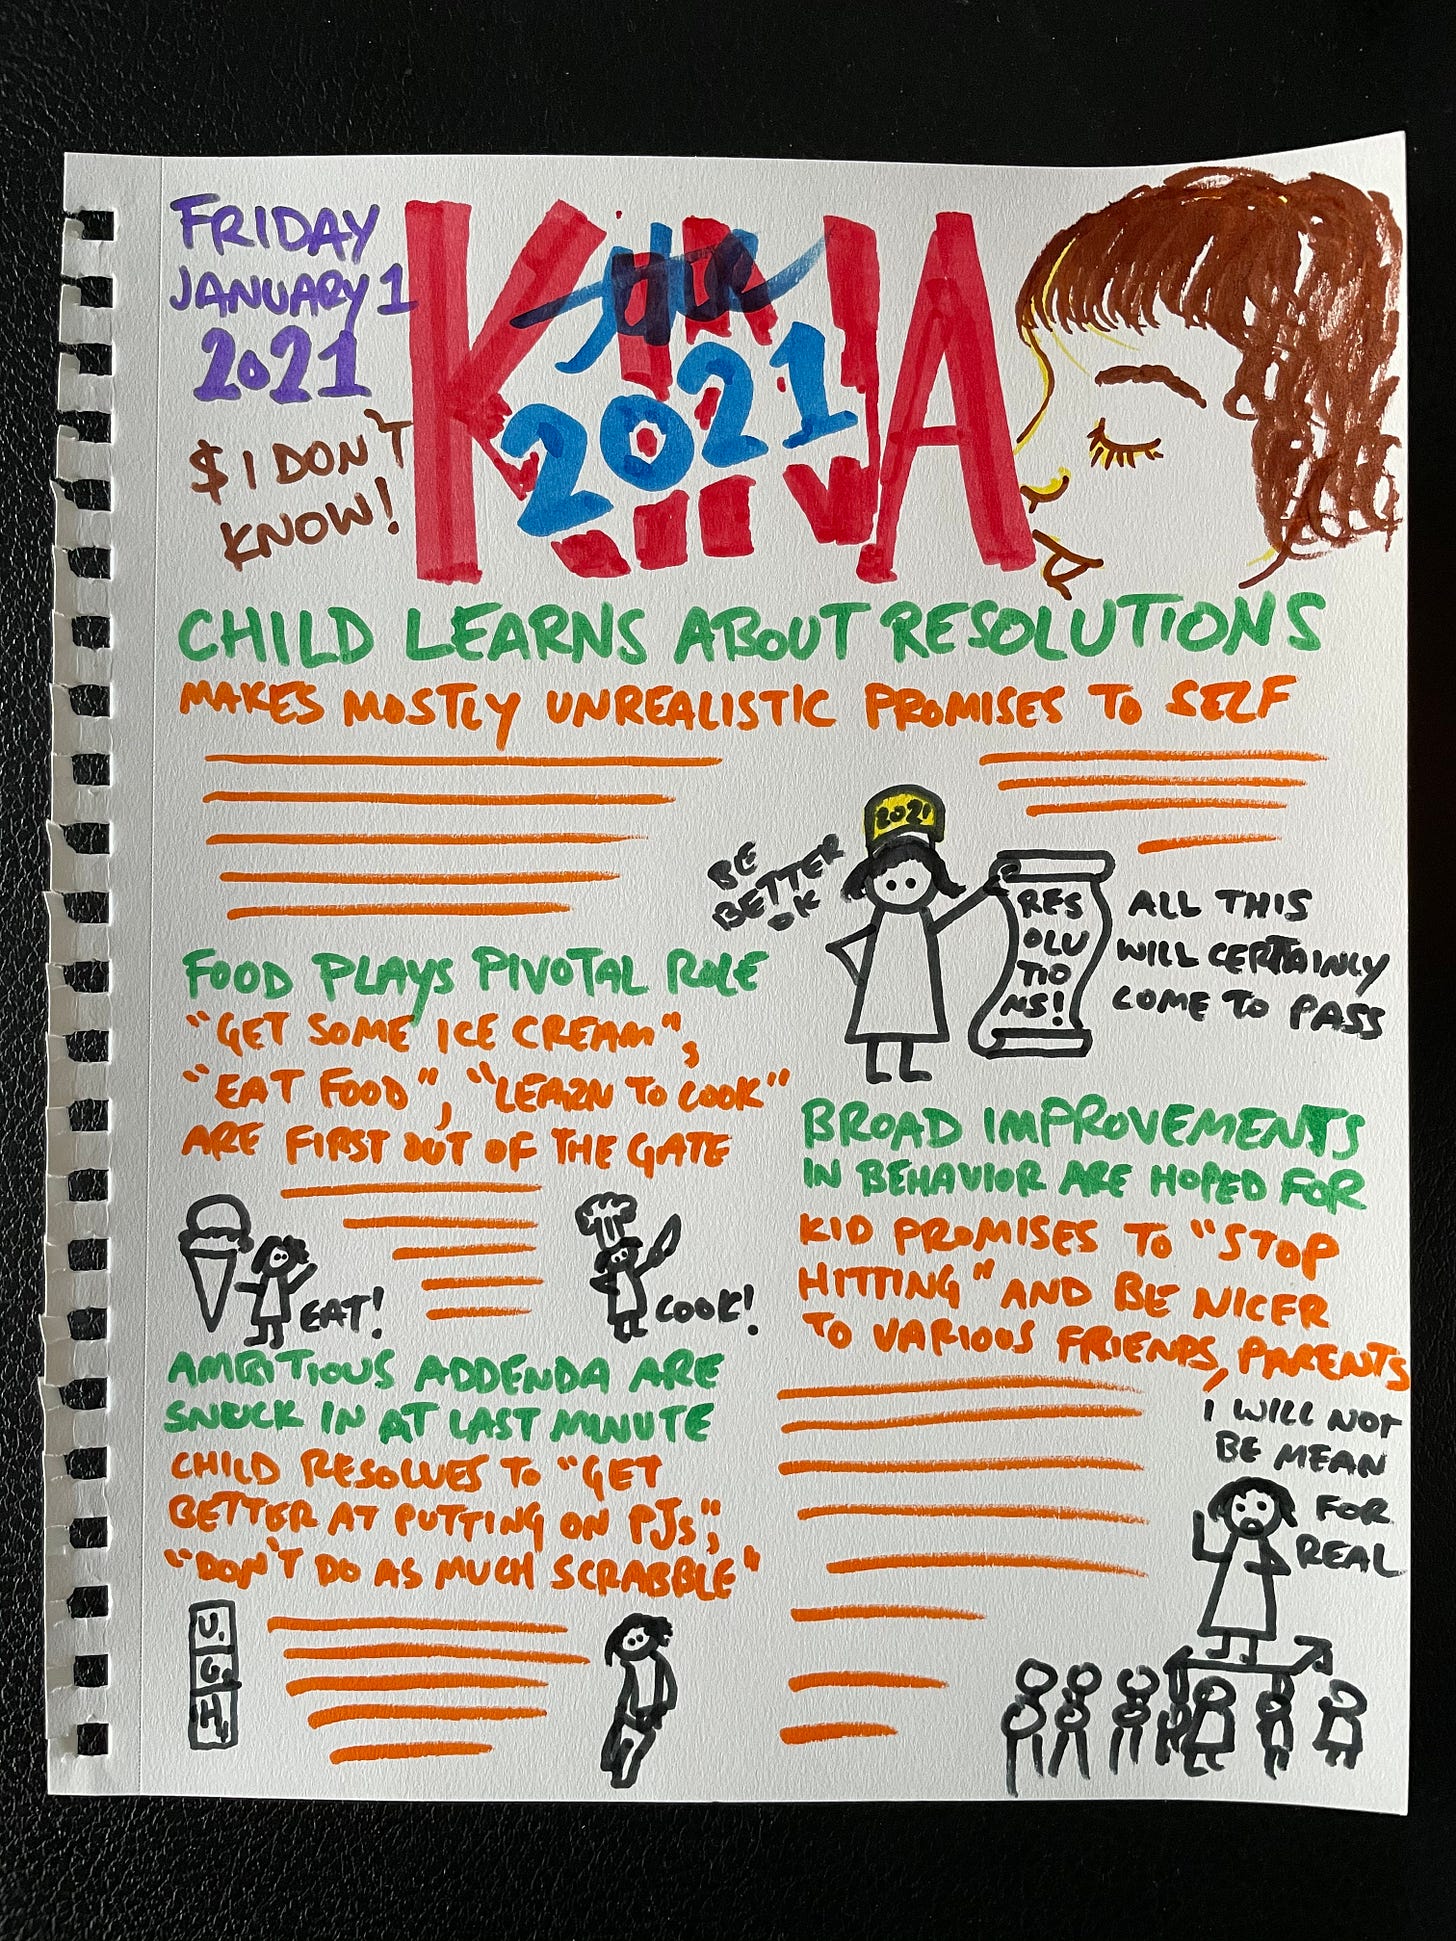 FRIDAY
JANUARY 1
2021
$ I DON'T
KNOW!
KINJA
2021
CHILD LEARNS ABOUT RESOLUTIONS
MAKES MOSTLY UNREALISTIC PROMISES TO SELF
2021
BE
BETTER
OK
RES
OLU
TIO
NS!
ALL THIS
WILL CERTAINLY
COME TO PASS
FOOD PLAYS PIVOTAL ROLE
"GET SOME ICE CREAM",
"EAT FOOD", "LEARN TO COOK"
ARE FIRST OUT OF THE GATE
EAT!
COOK!
AMBITIOUS ADDENDA ARE
SNUCK IN AT LAST MINUTE
CHILD RESOLVES TO "GET
BETTER AT PUTTING ON PJS",
"DON'T DO AS MUCH SCRABBLE"
U.
G.
H.
BROAD IMPROVEMENTS
IN BEHAVIOR ARE HOPED FOR
KID PROMISES TO "STOP
HITTING" AND BE NICER
TO VARIOUS FRIENDS, PARENTS
I WILL NOT
BE MEAN
FOR
REAL